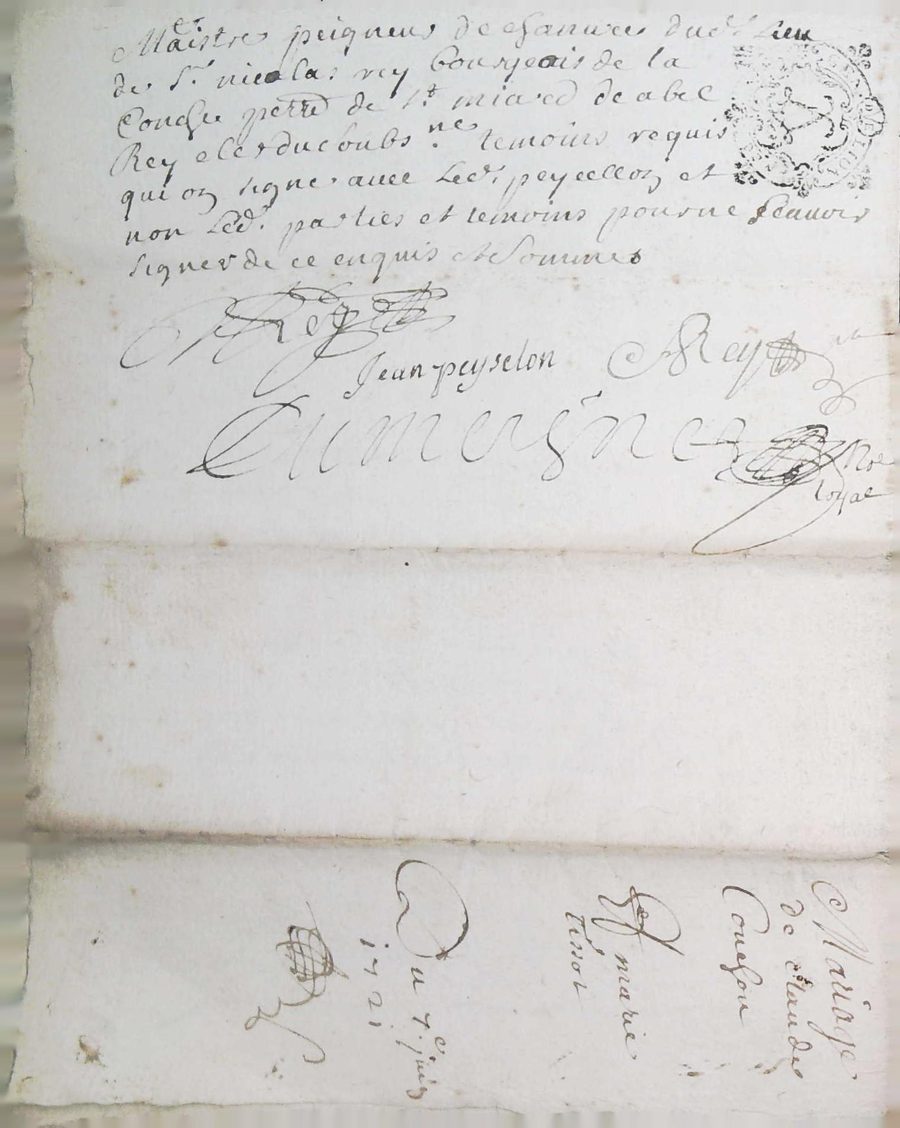 Maistre peigneur de chanvre dud. Lieu
de Sr. nicolas rey bourgeois de la
Conche de St. miard de abel
Rey clerc temoins requis
qui on signe avec Led. peycellon et
non Led. parties et temoins pour ne scavoir
signer de ce enquis et Sommes
Rey
Jean peyselon
Rey
Dumergne
Nre
Royal
Mariage
de Claude
Couchou
Et marie
tissot
Du 7e juin
1721